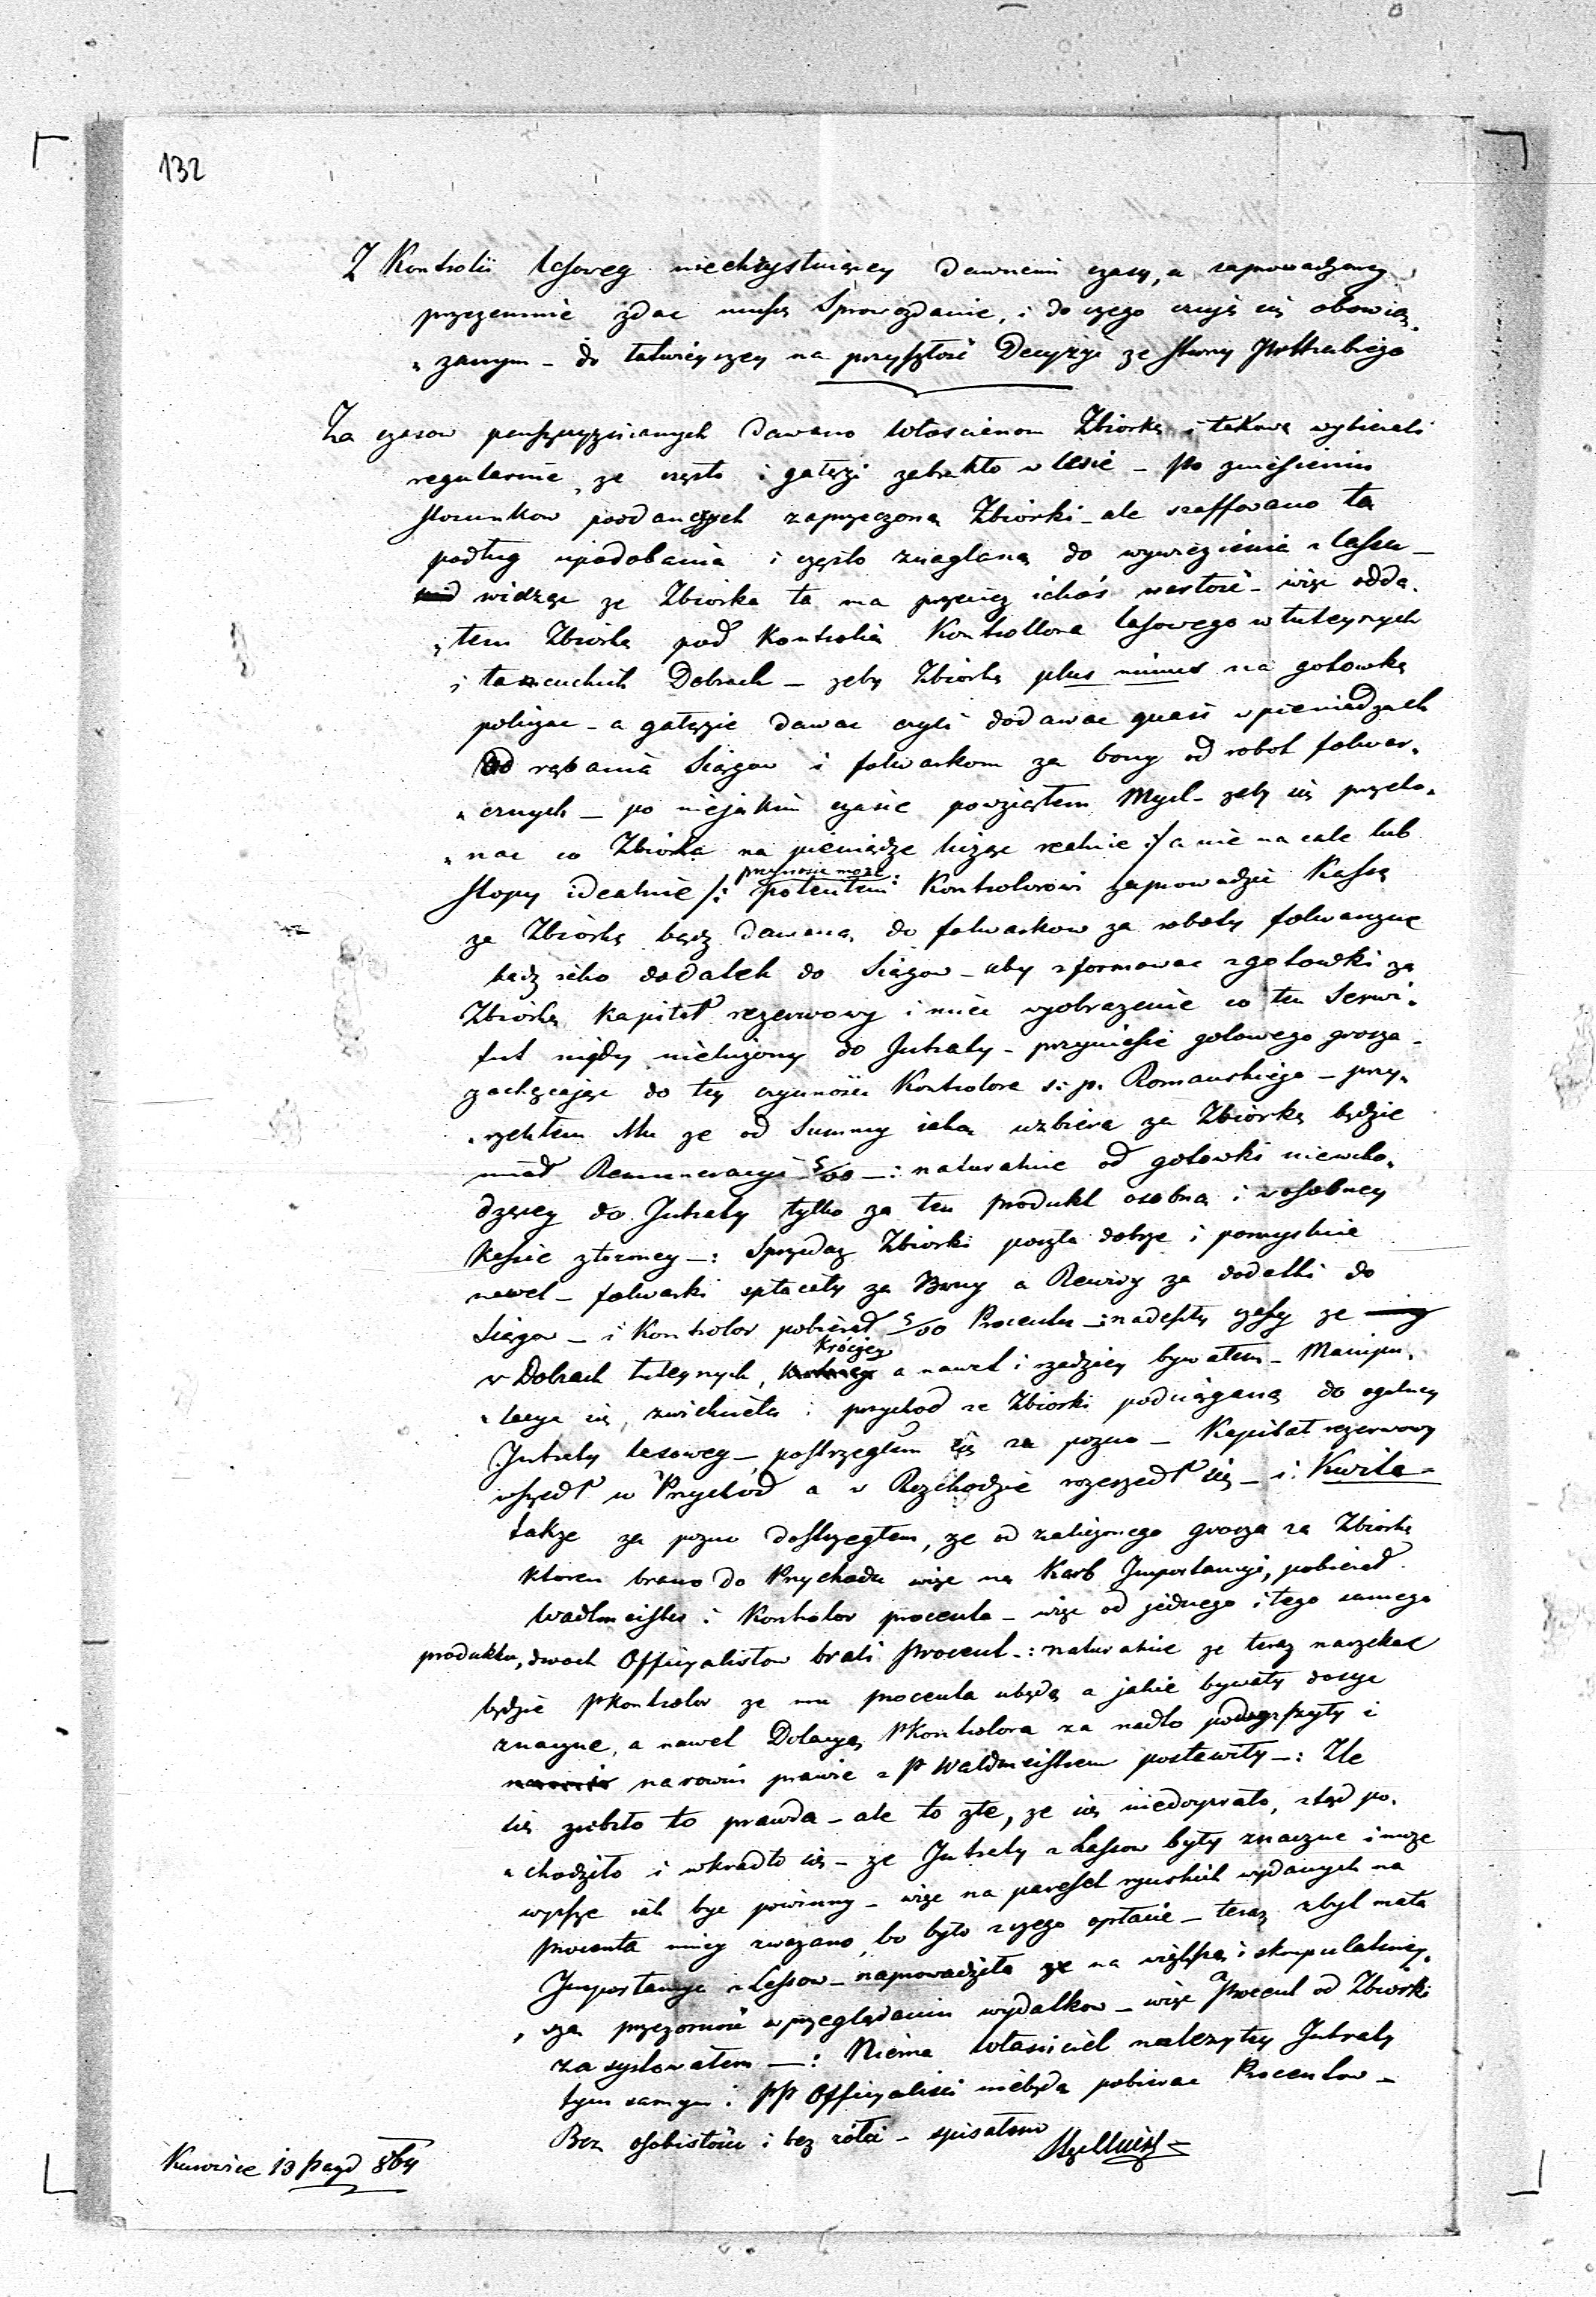 132
Z Kontrolii lasowey niechzystniący dawnemi czasy, a zaprowadzoney
przezemnie zdac muszę Sprawozdanie, i do czego czuję się obowią„
„zanym – do łatwieyszey na przyszłość Decyzyi ze strony JWHrabiego
Za czasow panszczyznianych dawano Włoscianom Zbiorkę i takową wybierali
regularnie, ze często i gałęzi zabrakło w lesie – po zniesieniu
stosunkow poddanczych zaprzeczoną Zbiorki – ale szaffowano tą
podług upodobania i często znaglaną do wywiezienia z lassu –
widząc ze Zbiorka ta ma przeciez jakąś wartość – więc odda„
„łem Zbiorkę pod Kontrolią Kontrollora lasowego w tuteysych
i łancuckich Dobrach – zeby Zbiorkę plus minus na gotowkę
policzac – a gałęzie dawac czyli dodawac quasi w pieniądzach
Od rąbania Siągow i folwarkom za bony od robot folwar„
„cznych – po niejakim czasie powziąłem Mysl – zeby się przeko„
„nac co Zbiorka na pieniądze licząc realnie :/ a nie na cale lub
stopy idealnie /: przynosic moze: poleciłem Kontrolorowi zaprowadzic Kassę
za Zbiorkę bądz dawaną do folwarkow za roboty folwarczne
bądz jako dodatek do Siągow – aby zformowac z gotowki za
Zbiorkę Kapitał rezerwowy i miec wyobrazenie co ten Serwi„
tut nigdy nieliczony do Intraty – przyniesie gotowego grosza –
zachęcając do tey czynności Kontrolora s: p. Romanskiego – przy„
„rzekłem Mu ze od Summy jaka uzbiera za Zbiorkę będzie
miał Remuneracyi 5/00 –: naturalnie od gotowki niewcho„
dzącey do Intraty tylko za ten produkt osobną i w osobney
Kassie złozoney –: Sprzedaz Zbiorki poszła dobrze i pomyslnie
nawet – folwarki spłacały za Bony a Rewiry za dodatki do
Siągow – i Kontrolor pobierał 5/00 Procentu –: nadeszły czasy ze
w Dobrach tuteysych, króciey a nawet i rzadziey bywałem – Manipu„
„lacya się zwichnęła i przychod ze Zbiorki podciągano do ogolney
Intraty lasowey – postrzegłem się za pozno – Kapitał rezerwowy
wszedł w Przychód a w Rozchodzie rozeszedł się – i Kwita –
także za pozno dostrzegłem, ze od zaliczonego grosza za Zbiorkę
ktoren brano do Przychodu więc na Karb Importancyi, pobierał
Waldmeister i Kontrolor procenta – więc od jednego i tego samego
produktu, dwoch Officyalistow brali procent –: naturalnie ze teraz narzekac
będzie PKontrolor ze mu procenta ubędą a jakie bywały dosyc
znaczne, a nawet Dotacyą PKontrolora za nadto podwyzszyły i
na rowni prawie z P Waldmeistrem postawiły –: Zle
się zrobiło to prawda – ale to złe, ze się niedoyrzało, ztąd po„
„chodziło i wkradło się – ze Intraty z Lassow były znaczne i moze
wyzsze jak byc powinny – więc na pareset rynskich wydanych na
procenta mniey zwazano, bo było z czego opłacic – teraz zbyt mała
Importancya z Lassow – naprowadziła ze na większą i skrupulatniey„
„szą przezornosc w przeglądaniu wydatkow – więc Procent od Zbiorki
zasystowałem –: Niema Własciciel nalezytey Intraty
tym samym i PP Officyalisci niebędą pobierac Procentow –
Bez osobistości i bez zółci – spisałem
Kurowice 13 pazd 864